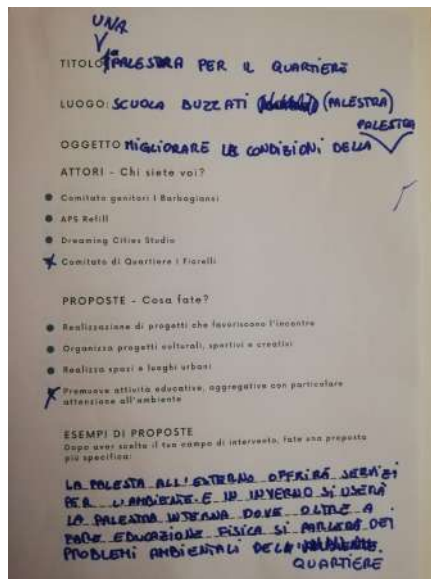 UNA
TITOLO: PALESTRA PER IL QUARTIERE
LUOGO: SCUOLA BUZZATI (PALESTRA)
PALESTRA
OGGETTO MIGLIORARE LE CONDIZIONI DELLA
ATTORI - Chi siete voi?
Comitato genitori I Barbagianni
APS Refill
Dreaming Cities Studio
Comitato di Quartiere i Fiorelli
PROPOSTE - Cosa fate?
Realizzazione di progetti che favoriscono l'incontro
Organizza progetti culturali, sportivi e creativi
Realizza spazi e luoghi urbani
Promuove attività educative, aggregative con particolare
attenzione all'ambiente
ESEMPI DI PROPOSTE
Dopo aver scelto il tuo campo di intervento, fate una proposta
più specifica:
LA PALESTA ALL'ESTERNO OFFRIRÀ SERVIZI
PER L'AMBIENTE E IN INVERNO SI USERÀ
LA PALESTRA INTERNA DOVE OLTRE A
FARE EDUCAZIONE FISICA SI PARLERÀ DEI
PROBLEMI AMBIENTALI DEL
QUARTIERE